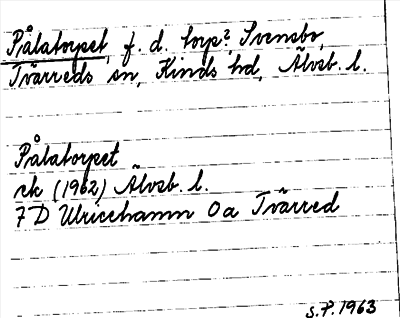 Pålatorpet, f. d. torp? Svensbo,
Tvärreds sn, Kinds hd, Älvsb. l.
Pålatorpet
rk (1962) Älvsb. l.
7 D Ulricehamn 0a Tvärred
S.P. 1963